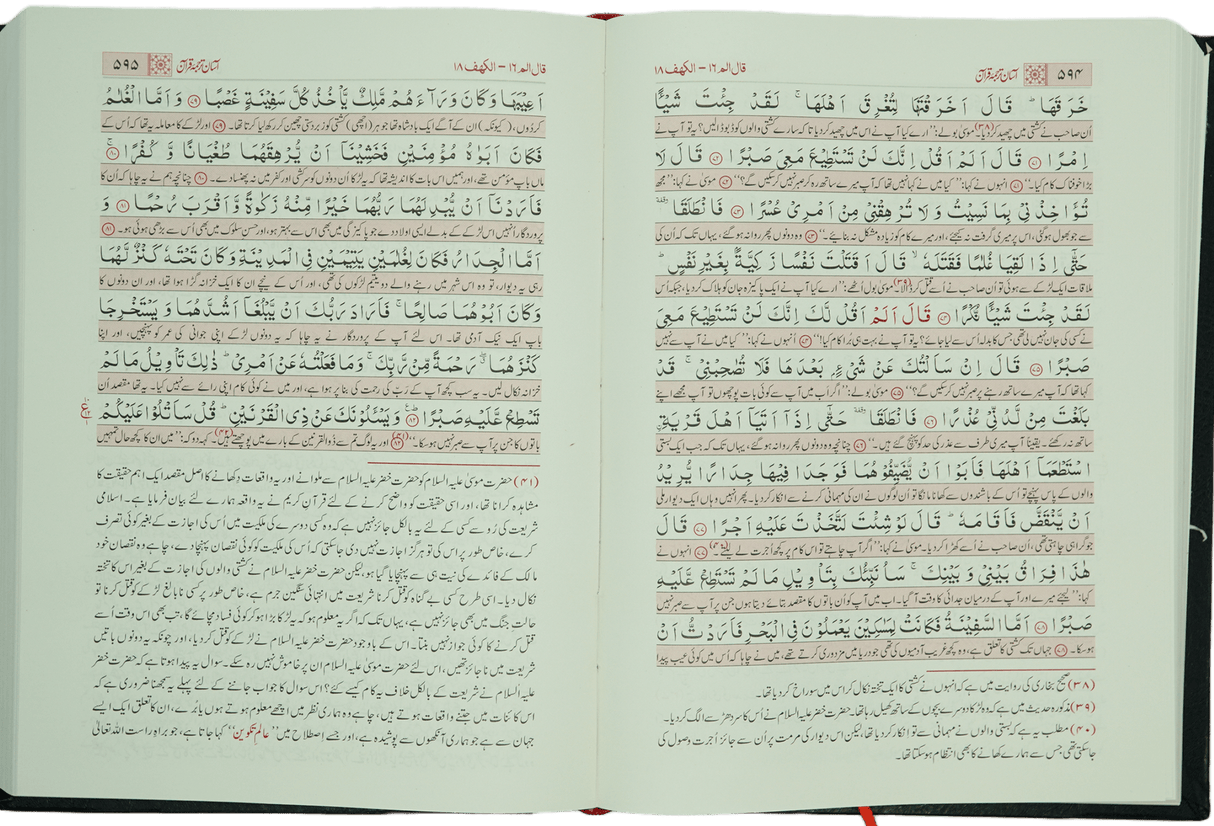 ۵۹۴
آسان ترجمۂ قرآن
قال الم ۱۶ – الکهف ۱۸
خَرَقَهَا ؕ قَالَ اَخَرَقْتَهَا لِتُغْرِقَ اَهْلَهَا ۚ لَقَدْ جِئْتَ شَيْـًٔا
اُن صاحب نے کشتی میں چھید کردیا۔(۳۸) موسیٰ بولے: ’’ارے کیا آپ نے اس میں چھید کردیا تاکہ سارے کشتی والوں کو ڈبو ڈالیں؟ یہ تو آپ نے
اِمْرًا ﴿۷۱﴾ قَالَ اَلَمْ اَقُلْ اِنَّكَ لَنْ تَسْتَطِيْعَ مَعِيَ صَبْرًا ﴿۷۲﴾ قَالَ لَا
بڑا خوفناک کام کیا۔‘‘ ﴿۷۱﴾ انہوں نے کہا: ’’کیا میں نے کہا نہیں تھا کہ آپ میرے ساتھ رہ کر صبر نہیں کر سکیں گے؟‘‘ ﴿۷۲﴾ موسیٰ نے کہا: ’’مجھ
تُؤَاخِذْنِيْ بِمَا نَسِيْتُ وَلَا تُرْهِقْنِيْ مِنْ اَمْرِيْ عُسْرًا ﴿۷۳﴾ فَانْطَلَقَا ۥ
سے جو بھول ہوگئی، اس پر میری گرفت نہ کیجئے، اور میرے کام کو زیادہ مشکل نہ بنائیے۔‘‘ ﴿۷۳﴾ وہ دونوں پھر روانہ ہوگئے، یہاں تک کہ اُن کی
حَتّٰۤى اِذَا لَقِيَا غُلٰمًا فَقَتَلَهٗ ۙ قَالَ اَقَتَلْتَ نَفْسًا زَكِيَّةًۢ بِغَيْرِ نَفْسٍ ؕ
ملاقات ایک لڑکے سے ہوئی تو اُن صاحب نے اُسے قتل کر ڈالا۔(۳۹) موسیٰ بول اُٹھے: ’’ارے کیا آپ نے ایک پاکیزہ جان کو ہلاک کردیا، جبکہ اُس
لَقَدْ جِئْتَ شَيْـًٔا نُّكْرًا ﴿۷۴﴾ قَالَ اَلَمْ اَقُلْ لَّكَ اِنَّكَ لَنْ تَسْتَطِيْعَ مَعِيَ
نے کسی کی جان نہیں لی تھی جس کا بدلہ اُس سے لیا جائے؟ یہ تو آپ نے بہت ہی بُرا کام کیا!‘‘ ﴿۷۴﴾ اُنہوں نے کہا: ’’کیا میں نے آپ سے نہیں
صَبْرًا ﴿۷۵﴾ قَالَ اِنْ سَاَلْتُكَ عَنْ شَيْءٍۭ بَعْدَهَا فَلَا تُصٰحِبْنِيْ ۚ قَدْ
کہا تھا کہ آپ میرے ساتھ رہنے پر صبر نہیں کر سکیں گے؟‘‘ ﴿۷۵﴾ موسیٰ بولے: ’’اگر اَب میں آپ سے کوئی بات پوچھوں تو آپ مجھے اپنے
بَلَغْتَ مِنْ لَّدُنِّيْ عُذْرًا ﴿۷۶﴾ فَانْطَلَقَا ۥ حَتّٰۤى اِذَاۤ اَتَيَاۤ اَهْلَ قَرْيَةِ ۣ
ساتھ نہ رکھئے۔ یقیناً آپ میری طرف سے عذر کی حد کو پہنچ گئے ہیں۔‘‘ ﴿۷۶﴾ چنانچہ وہ دونوں پھر روانہ ہوگئے، یہاں تک کہ جب ایک بستی
اسْتَطْعَمَاۤ اَهْلَهَا فَاَبَوْا اَنْ يُّضَيِّفُوْهُمَا فَوَجَدَا فِيْهَا جِدَارًا يُّرِيْدُ
والوں کے پاس پہنچے تو اُس کے باشندوں سے کھانا مانگا تو اُن لوگوں نے ان کی مہمانی کرنے سے انکار کردیا۔ پھر اُنہیں وہاں ایک دیوار ملی
اَنْ يَّنْقَضَّ فَاَقَامَهٗ ؕ قَالَ لَوْ شِئْتَ لَتَّخَذْتَ عَلَيْهِ اَجْرًا ﴿۷۷﴾ قَالَ
جو گرا ہی چاہتی تھی، اُن صاحب نے اُسے کھڑا کردیا۔ موسیٰ نے کہا: ’’اگر آپ چاہتے تو اس کام پر کچھ اُجرت لے لیتے۔‘‘(۴۰) ﴿۷۷﴾ انہوں نے
هٰذَا فِرَاقُ بَيْنِيْ وَبَيْنِكَ ۚ سَاُنَبِّئُكَ بِتَاْوِيْلِ مَا لَمْ تَسْتَطِعْ عَّلَيْهِ
کہا: ’’لیجئے میرے اور آپ کے درمیان جدائی کا وقت آگیا۔ اب میں آپ کو اُن باتوں کا مقصد بتائے دیتا ہوں جن پر آپ سے صبر نہیں
صَبْرًا ﴿۷۸﴾ اَمَّا السَّفِيْنَةُ فَكَانَتْ لِمَسٰكِيْنَ يَعْمَلُوْنَ فِي الْبَحْرِ فَاَرَدْتُّ اَنْ
ہوسکا۔ ﴿۷۸﴾ جہاں تک کشتی کا تعلق ہے، وہ کچھ غریب آدمیوں کی تھی جو دریا میں مزدوری کرتے تھے، میں نے چاہا کہ اُس میں کوئی عیب پیدا
(۳۸) صحیح بخاری کی روایت میں ہے کہ انہوں نے کشتی کا ایک تختہ نکال کر اس میں سوراخ کردیا تھا۔
(۳۹) مذکورہ حدیث میں ہے کہ وہ لڑکا دوسرے بچوں کے ساتھ کھیل رہا تھا۔ حضرت خضر علیہ السلام نے اُس کا سر دھڑ سے الگ کردیا۔
(۴۰) مطلب یہ ہے کہ بستی والوں نے مہمانی سے تو انکار کردیا تھا، لیکن اس دیوار کی مرمت پر اُن سے جائز اُجرت وصول کی
جاسکتی تھی جس سے ہمارے کھانے کا بھی انتظام ہوسکتا تھا۔
قال الم ۱۶ – الکهف ۱۸
آسان ترجمۂ قرآن
۵۹۵
اَعِيْبَهَا وَكَانَ وَرَآءَهُمْ مَّلِكٌ يَّاْخُذُ كُلَّ سَفِيْنَةٍ غَصْبًا ﴿۷۹﴾ وَاَمَّا الْغُلٰمُ
کردوں، (کیونکہ) ان کے آگے ایک بادشاہ تھا جو ہر (اچھی) کشتی کو زبردستی چھین کر رکھ لیا کرتا تھا۔ ﴿۷۹﴾ اور لڑکے کا معاملہ یہ تھا کہ اُس کے
فَكَانَ اَبَوٰهُ مُؤْمِنَيْنِ فَخَشِيْنَاۤ اَنْ يُّرْهِقَهُمَا طُغْيَانًا وَّكُفْرًا ﴿۸۰﴾
ماں باپ مؤمن تھے، اور ہمیں اس بات کا اندیشہ تھا کہ یہ لڑکا اُن دونوں کو سرکشی اور کفر میں نہ پھنسا دے۔ ﴿۸۰﴾ چنانچہ ہم نے یہ چاہا کہ اُن کا
فَاَرَدْنَاۤ اَنْ يُّبْدِلَهُمَا رَبُّهُمَا خَيْرًا مِّنْهُ زَكٰوةً وَّاَقْرَبَ رُحْمًا ﴿۸۱﴾ وَ
پروردگار اُنہیں اس لڑکے کے بدلے ایسی اولاد دے جو پاکیزگی میں بھی اس سے بہتر ہو، اور حسنِ سلوک میں بھی اُس سے بڑھی ہوئی ہو۔ ﴿۸۱﴾
اَمَّا الْجِدَارُ فَكَانَ لِغُلٰمَيْنِ يَتِيْمَيْنِ فِي الْمَدِيْنَةِ وَكَانَ تَحْتَهٗ كَنْزٌ لَّهُمَا
رہی یہ دیوار، تو وہ اس شہر میں رہنے والے دو یتیم لڑکوں کی تھی، اور اُس کے نیچے اِن کا ایک خزانہ گڑا ہوا تھا، اور ان دونوں کا
وَكَانَ اَبُوْهُمَا صَالِحًا ۚ فَاَرَادَ رَبُّكَ اَنْ يَّبْلُغَاۤ اَشُدَّهُمَا وَيَسْتَخْرِجَا
باپ ایک نیک آدمی تھا۔ اس لئے آپ کے پروردگار نے یہ چاہا کہ یہ دونوں لڑکے اپنی جوانی کی عمر کو پہنچیں، اور اپنا
كَنْزَهُمَا ۖۗ رَحْمَةً مِّنْ رَّبِّكَ ۚ وَمَا فَعَلْتُهٗ عَنْ اَمْرِيْ ؕ ذٰلِكَ تَاْوِيْلُ مَا لَمْ
خزانہ نکال لیں۔ یہ سب کچھ آپ کے رَبّ کی رحمت کی بنا پر ہوا ہے، اور میں نے کوئی کام اپنی رائے سے نہیں کیا۔ یہ تھا مقصد اُن
تَسْطِعْ عَّلَيْهِ صَبْرًا ﴿۸۲﴾ وَيَسْـَٔلُوْنَكَ عَنْ ذِي الْقَرْنَيْنِ ؕ قُلْ سَاَتْلُوْا عَلَيْكُمْ
باتوں کا جن پر آپ سے صبر نہیں ہوسکا۔‘‘(۴۱) ﴿۸۲﴾ اور یہ لوگ تم سے ذوالقرنین کے بارے میں پوچھتے ہیں۔(۴۲) کہہ دو کہ: ’’میں ان کا کچھ حال تمہیں
(۴۱) حضرت موسیٰ علیہ السلام کو حضرت خضر علیہ السلام سے ملوانے اور یہ واقعات دکھانے کا اصل مقصد ایک اہم حقیقت کا
مشاہدہ کرانا تھا، اور اسی حقیقت کو واضح کرنے کے لئے قرآنِ کریم نے یہ واقعہ ہمارے لئے بیان فرمایا ہے۔ اسلامی
شریعت کی رُو سے کسی کے لئے یہ بالکل جائز نہیں ہے کہ وہ کسی دوسرے کی ملکیت میں اُس کی اجازت کے بغیر کوئی تصرف
کرے، خاص طور پر اس کی تو ہرگز اجازت نہیں دی جاسکتی کہ اُس کی ملکیت کو کوئی نقصان پہنچا دے، چاہے وہ نقصان خود
مالک کے فائدے کی نیت ہی سے پہنچایا گیا ہو، لیکن حضرت خضر علیہ السلام نے کشتی والوں کی اجازت کے بغیر اس کا تختہ
نکال دیا۔ اسی طرح کسی بے گناہ کو قتل کرنا شریعت میں انتہائی سنگین جرم ہے، خاص طور پر کسی نابالغ لڑکے کو قتل کرنا تو
حالتِ جنگ میں بھی جائز نہیں ہے، یہاں تک کہ اگر یہ معلوم ہو کہ یہ لڑکا بڑا ہو کر کوئی فساد مچائے گا، تب بھی اس وقت اُسے
قتل کرنے کا کوئی جواز نہیں بنتا۔ اس کے باوجود حضرت خضر علیہ السلام نے لڑکے کو قتل کردیا، اور چونکہ یہ دونوں باتیں
شریعت میں ناجائز تھیں، اس لئے حضرت موسیٰ علیہ السلام ان پر خاموش نہیں رہ سکے۔ سوال یہ پیدا ہوتا ہے کہ حضرت خضر
علیہ السلام نے شریعت کے بالکل خلاف یہ کام کیسے کئے؟ اس سوال کا جواب جاننے کے لئے پہلے یہ سمجھنا ضروری ہے کہ
اس کائنات میں جتنے واقعات ہوتے ہیں، چاہے وہ ہماری نظر میں اچھے معلوم ہوتے ہوں یا بُرے، ان کا تعلق ایک ایسے
جہان سے ہے جو ہماری آنکھوں سے پوشیدہ ہے، اور جسے اصطلاح میں ’’عالَمِ تکوین‘‘ کہا جاتا ہے، جو براہِ راست اللہ تعالیٰ